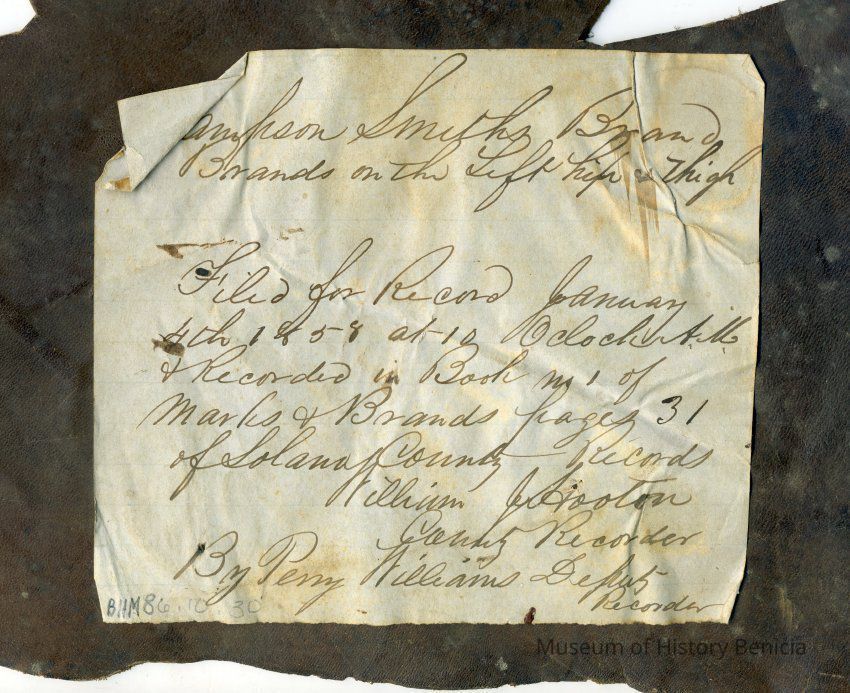 ampson Smiths Brand
Brands on the Left hip & Thigh
Filed for Record January
4th 1858 at 10 Oclock A.M
& Recorded in Book no 1 of
Marks & Brands pages 31
of Solano County Records
William Hooton
County Recorder
By Perry Williams Deputy
Recorder
BHM86.10.30
Museum of History Benicia